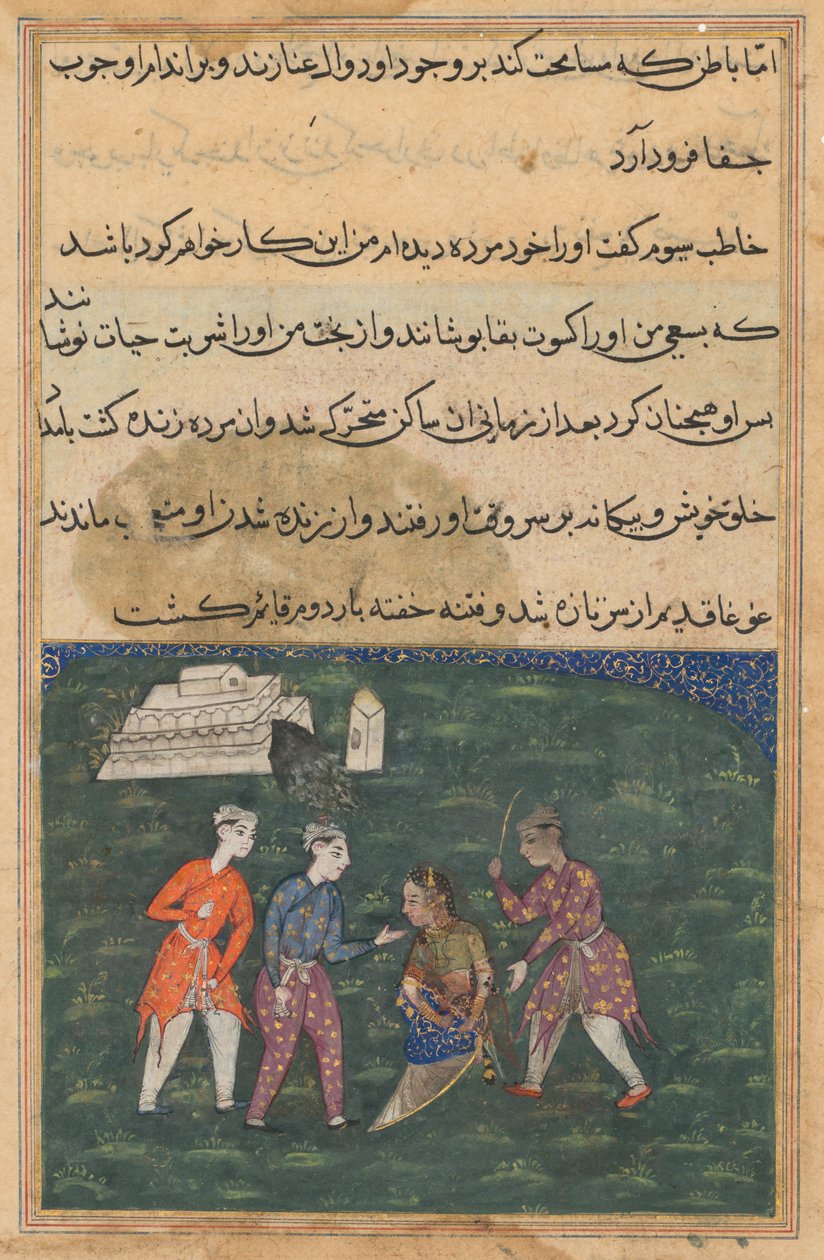 امّا باطن که مسامحت کند بر وجود او دوال عنا زند و بر اندام او چوب
جفا فرود آرد
خاطب سیوم گفت او را خود مرده دیده ام من این کار خواهم کرد باشد
که بسعی من او را کسوت بقا بپوشانند و از بخت من او را شربت حیات نوشانند
پس او همچنان کرد بعد از زمانی ان ساکن متحرّک شد و ان مرده زنده گشت بامداد
خلق خویش و بیکانه بر سر وقت او رفتند و از زنده شدن او ماندند
غوغا قدیم از سر تازه شد و فتنه خفته بار دوم قایم کشت